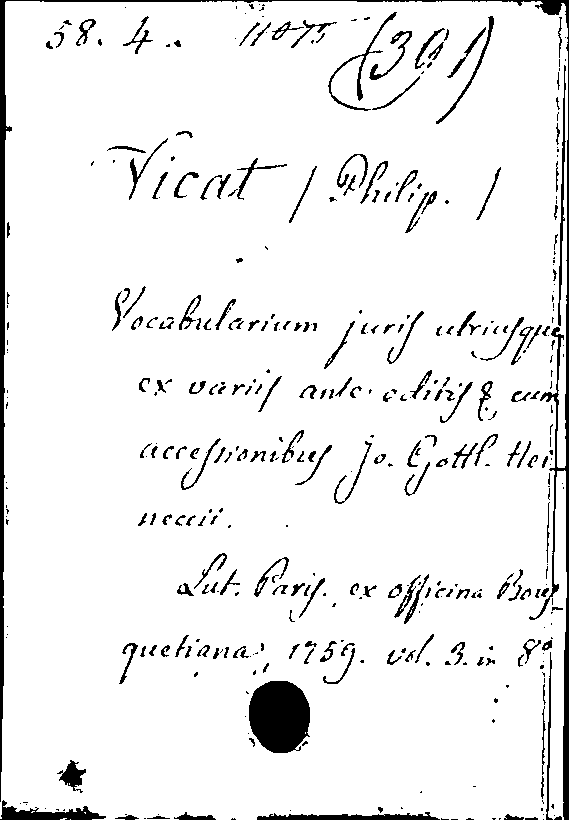 58. 4. 11075 (391)
Vicat / Philip. /
Vocabularium juris utriusque
ex variis ante editis & cum
accessionibus Jo. Gottl. Hei
neccii.
Lut. Paris. ex officina Bous
quetiana, 1759. vol. 3. in 8º